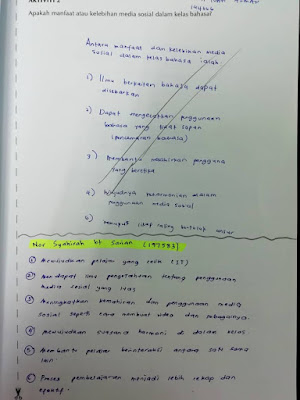 Apakah manfaat atau kelebihan media sosial dalam kelas bahasa?
Antara manfaat dan kelebihan media
sosial dalam kelas bahasa ialah
1) Ilmu berkaitan bahasa dapat
disebarkan
2) Dapat penggunaan
bahasa yang tidak sopan
(pencemaran bahasa)
3) Membantu melahirkan pengguna
yang beretika
4) Wujudnya dalam
penggunaan media sosial
5)
Nor Syahirah bt Sanan (197583)
① Mewujudkan pelajar yang celik IT
② Mendapat ilmu pengetahuan tentang penggunaan
media sosial yang luas
③ Meningkatkan kemahiran dan penggunaan media
sosial seperti cara membuat video dan sebagainya.
④ Mewujudkan suasana harmoni di dalam kelas
⑤ Membantu pelajar berinteraksi antara satu sama
lain.
⑥ Proses pembelajaran menjadi lebih cekap dan
efektif.